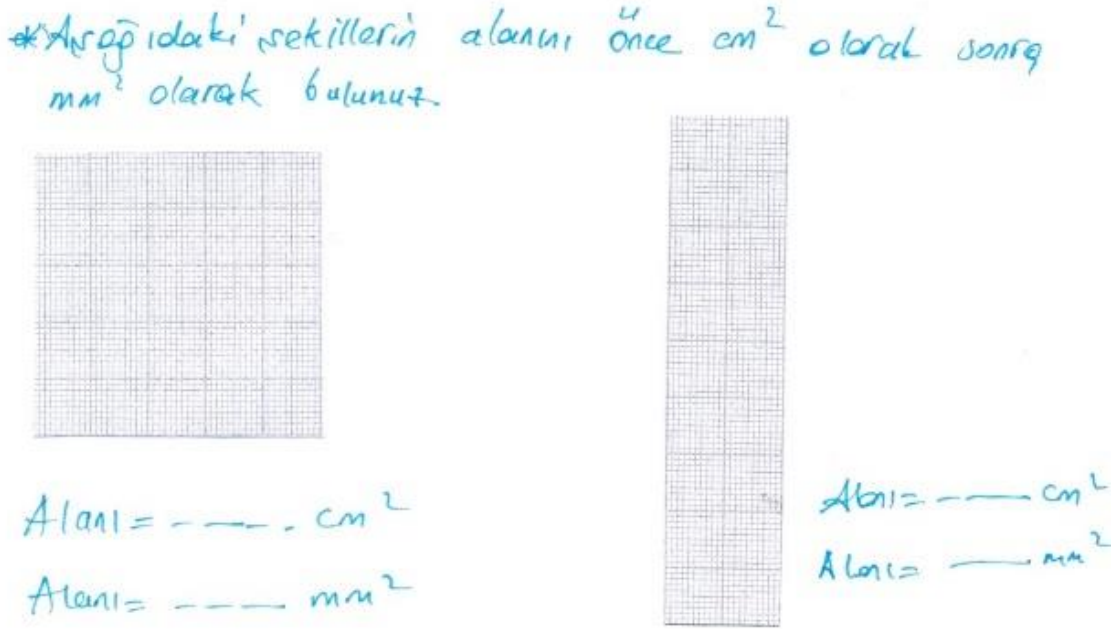 *Aşağıdaki şekillerin alanını önce cm² olarak sonra
mm² olarak bulunuz.
Alanı = - — - - . cm²
Alanı = - — — — mm²
Alanı = - — — cm²
Alanı = — — mm²